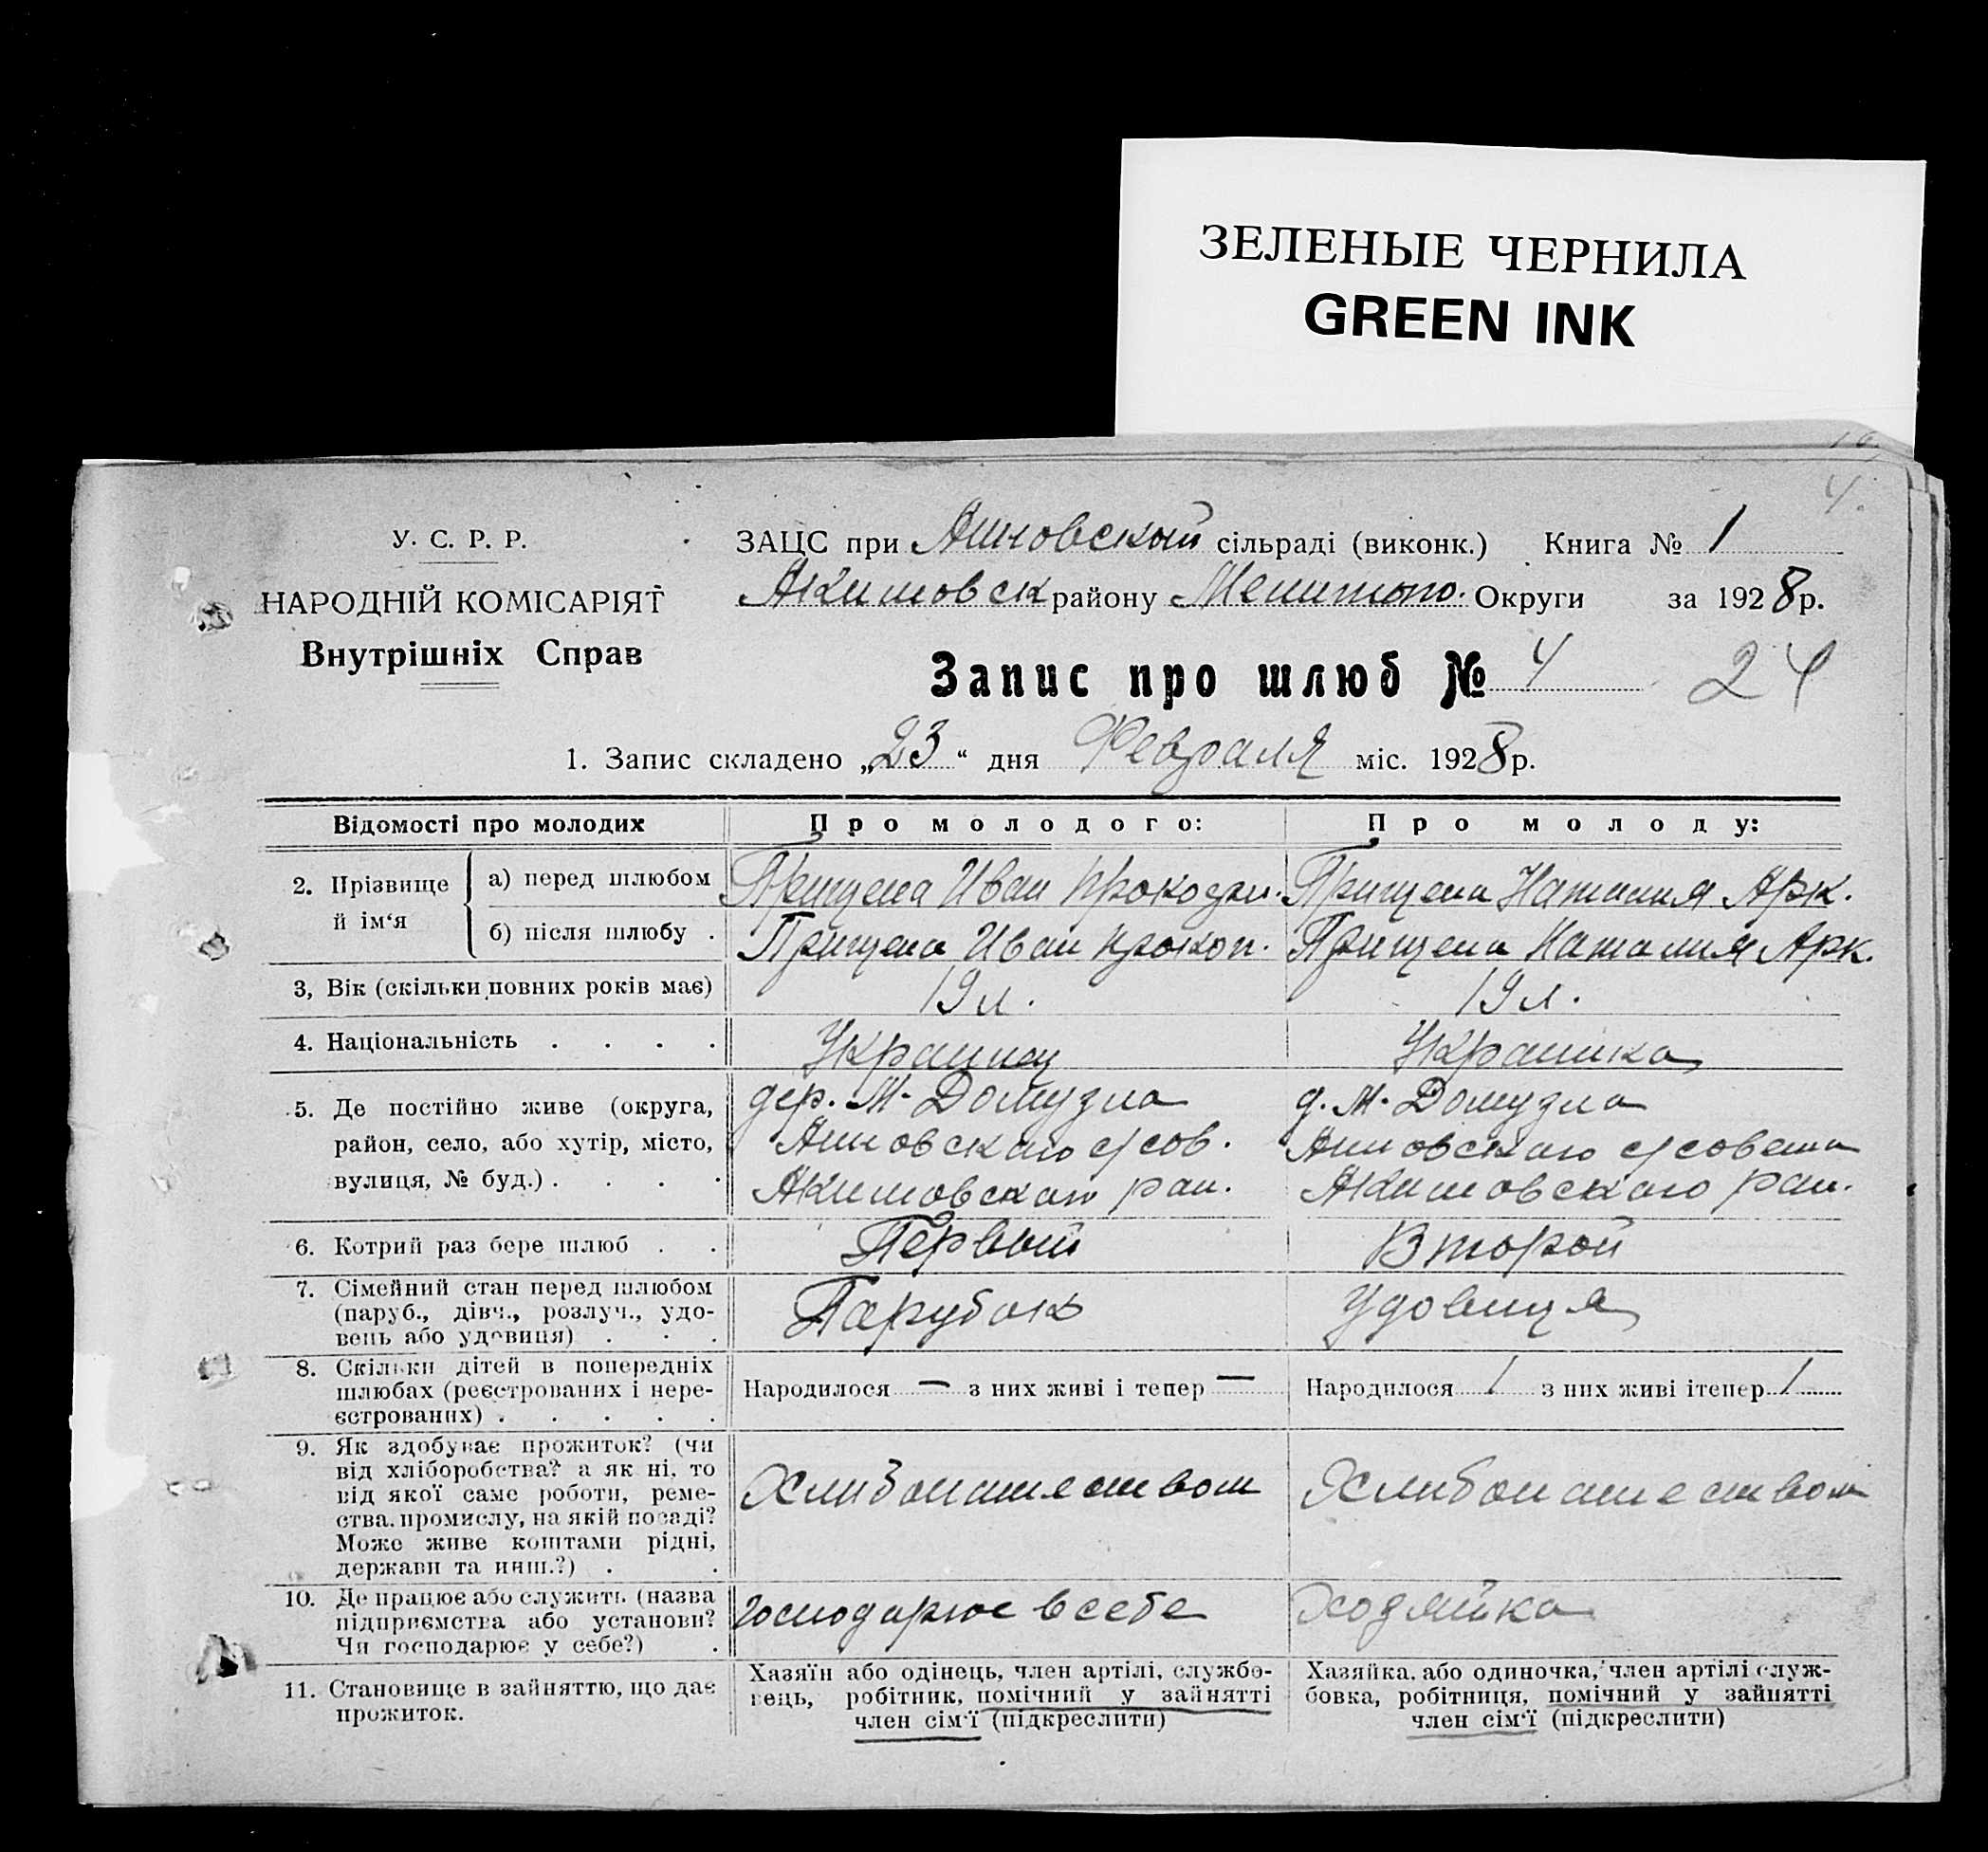 ЗЕЛЕНЫЕ ЧЕРНИЛА
GREEN INK
4.
У. С. Р. Р.
НАРОДНІЙ КОМІСАРІЯТ
Внутрішніх Справ
ЗАЦС при Анновской сільраді (виконк.) Книга № 1
Акимовск району Мелитопо. Округи за 1928 р.
Запис про шлюб № 4 24
1. Запис складено „23“ дня Февраля міс. 1928 р.
Відомості про молодих
Про молодого:
Про молоду:
2. Прізвище й ім‘я
а) перед шлюбом
Прищепа Иван Прокофи.
Прищепа Наталия Арк.
б) після шлюбу .
Прищепа Иван Прокоп.
Прищепа Наталия Арк.
3, Вік (скільки повних років має)
19 л.
19 л.
4. Національність . . . .
Украинец
Украинка
5. Де постійно живе (округа,
район, село, або хутір, місто,
вулиця, № буд.) . . . .
дер. М-Домузла
Анновского с/сов.
Акимовского рай.
д. М-Домузла
Анновского с/совета
Акимовского рай.
6. Котрий раз бере шлюб . .
Первый
Второй
7. Сімейний стан перед шлюбом
(паруб., дівч., розлуч., удо-
вець або удовиця) . . .
Парубок
Удовиця
8. Скільки дітей в попередніх
шлюбах (реєстрованих і нере-
єстрованих) . . . . .
Народилося — з них живі і тепер —
Народилося 1 з них живі ітепер 1
9. Як здобуває прожиток? (чи
від хліборобства? а як ні, то
від якої саме роботи, реме-
ства, промислу, на якій посаді?
Може живе коштами рідні,
держави та инш.?) . .
Хлибопашеством
Хлибопашеством
10. Де працює або служить (назва
підприємства або установи?
Чи господарює у себе?) .
господарює в себе
Хозяйка
11. Становище в зайняттю, що дає
прожиток.
Хазяїн або одінець, член артілі, службо-
вець, робітник, помічний у зайнятті
член сім‘ї (підкреслити)
Хазяйка, або одиночка, член артілі служ-
бовка, робітниця, помічний у зайнятті
член сім‘ї (підкреслити)